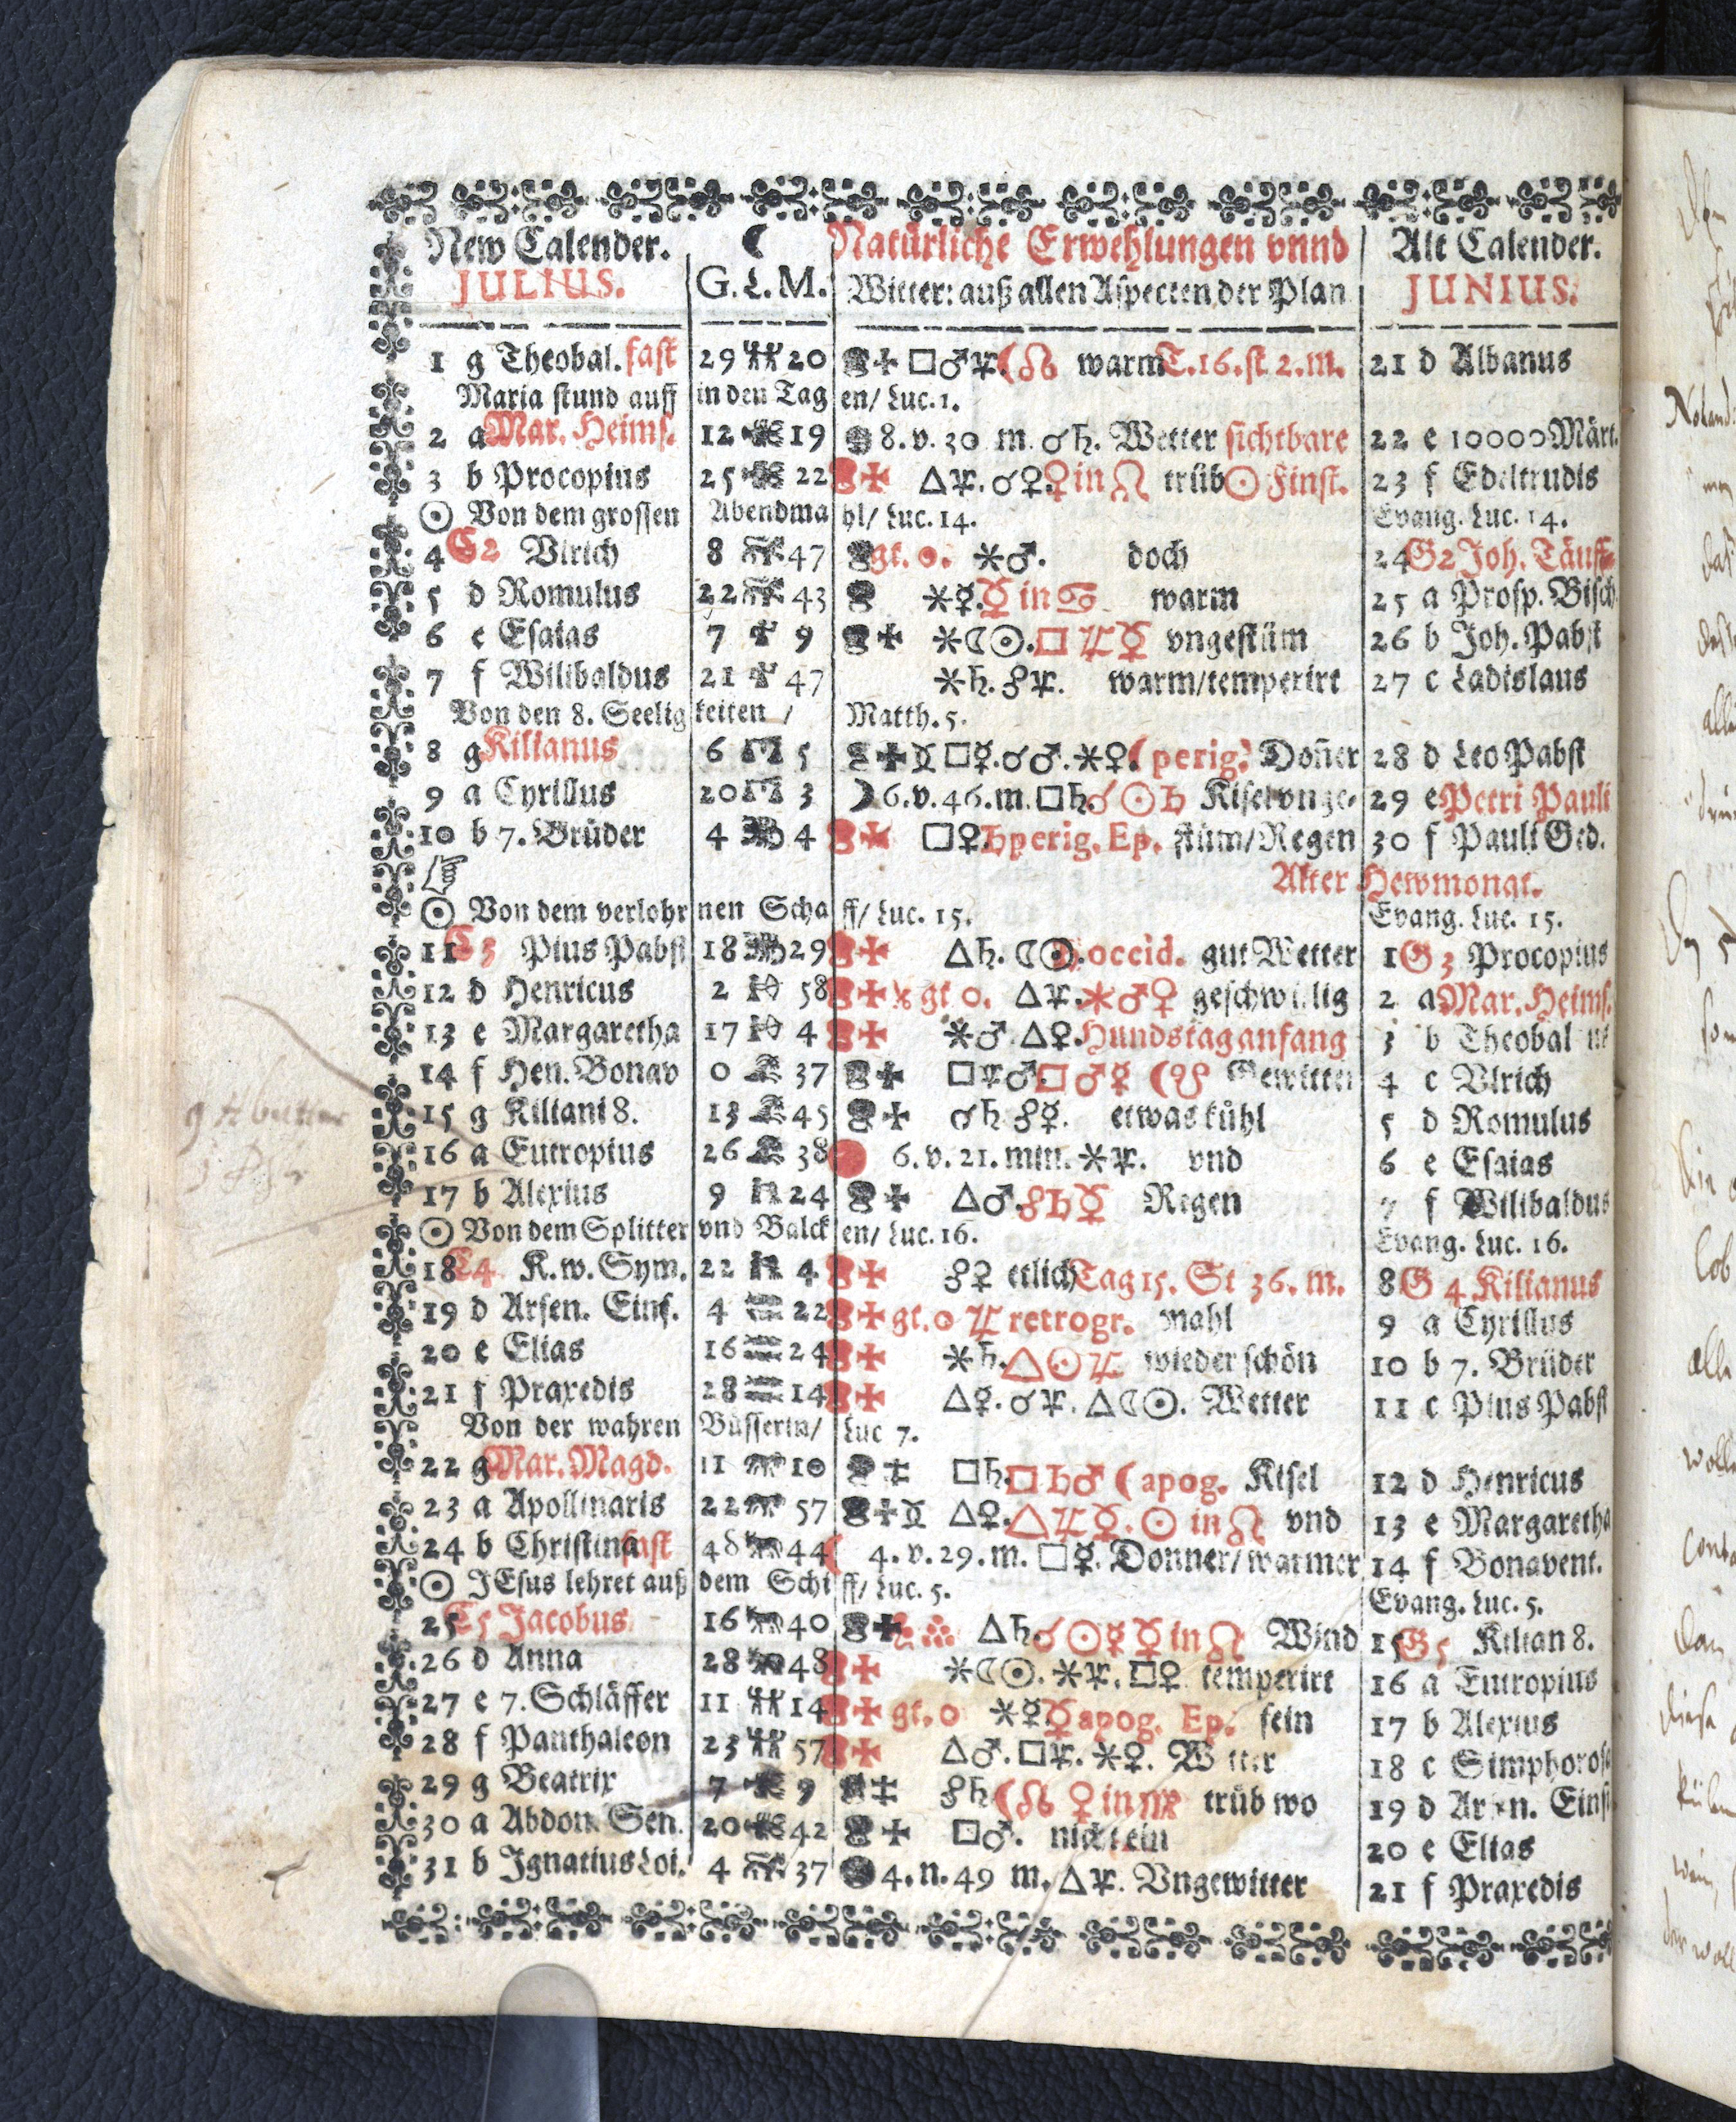 New Calender. ☾ Natürliche Erwehlungen vnnd Alt Calender.
JULIUS. G. L. M. Witter: auß allen Aspecten der Plan JUNIUS.
1 g Theobal. fast 29 20 □♂♃. (☊ warm T. 16. st 2. m. 21 d Albanus
Maria stund auff in den Tag en/ Luc. 1.
2 a Mar. Heims. 12 19 8. v. 30 m. ☌♄. Wetter sichtbare 22 e 10000 Märt.
3 b Procopius 25 22 △♃. ☌♀. ♀ in ♌ trüb ☉ Finst. 23 f Edeltrudis
☉ Von dem grossen Abendma hl/ Luc. 14. Evang. Luc. 14.
4 C2 Vlrich 8 47 gt. o. ⚹♂. doch 24 G2 Joh. Täuff
5 d Romulus 22 43 ⚹☿. ☿ in ♋ warm 25 a Prosp. Bisch.
6 e Esaias 7 9 ⚹☾☉. □♃☿ vngestüm 26 b Joh. Pabst
7 f Wilibaldus 21 47 ⚹♄. ☍♃. warm/temperirt 27 c Ladislaus
Von den 8. Seelig keiten / Matth. 5.
8 g Kilianus 6 5 □☿. ☌♂. ⚹♀. (perig. Doñer 28 d Leo Pabst
9 a Cyrillus 20 3 ☽ 6. v. 46. m. □♄. ☌☉♄ Kisel vnge- 29 e Petri Pauli
10 b 7. Brüder 4 4 □♀. ♄ perig. Ep. stüm/Regen 30 f Pauli Ged.
Alter Hewmonat.
☉ Von dem verlohr nen Scha ff/ Luc. 15. Evang. Luc. 15.
11 C3 Pius Pabst 18 29 △♄. ☾☉. occid. gut Wetter 1 G3 Procopius
12 d Henricus 2 58 gt o. △♃. ⚹♂♀ geschwillig 2 a Mar. Heims.
13 e Margaretha 17 4 ⚹♂. △♀. Hundstag anfang 3 b Theobal us
14 f Hen. Bonav 0 37 □♃♂. □♂☿ (☋ Gewitter 4 c Vlrich
15 g Kiliani 8. 13 45 ☌♄ ☍☿. etwas kühl 5 d Romulus
16 a Eutropius 26 38 6. v. 21. min. ⚹♃. vnd 6 e Esaias
17 b Alexius 9 24 △♂. ☍♄☿ Regen 7 f Wilibaldus
☉ Von dem Splitter vnd Balck en/ Luc. 16. Evang. Luc. 16.
18 C4 K. w. Sym. 22 4 ☍♀ etlich Tag 15. St 36. m. 8 G 4 Kilianus
19 d Arsen. Eins. 4 22 gt. o ♃ retrogr. mahl 9 a Cyrillus
20 e Elias 16 24 ⚹♄. △☉♃ wieder schön 10 b 7. Brüder
21 f Praxedis 28 14 △☿. ☌♃. △☾☉. Wetter 11 c Pius Pabst
Von der wahren Büsserin/ Luc 7.
22 g Mar. Magd. 11 10 □♄. □♄♂ (apog. Kisel 12 d Henricus
23 a Apollinaris 22 57 △♀. △♃☿. ☉ in ♌ vnd 13 e Margaretha
24 b Christina fast 48 44 ( 4. v. 29. m. □☿. Donner/ warmer 14 f Bonavent.
☉ JEsus lehret auß dem Schi ff/ Luc. 5. Evang. Luc. 5.
25 C5 Jacobus 16 40 △♄. ☌☉☿ ☿ in ♌ Wind 15 G5 Kilian 8.
26 d Anna 28 48 ⚹☾☉. ⚹♃. □♀ temperirt 16 a Eutropius
27 e 7. Schläffer 11 14 gt. o ⚹☿ ☿ apog. Ep. fein 17 b Alexius
28 f Panthaleon 23 57 △♂. □♃. ⚹♀. W tter 18 c Simphorose
29 g Beatrix 7 9 ☍♄ (☊ ♀ in ♍ trüb wo 19 d Arsen. Eins
30 a Abdon. Sen. 20 42 □♂. nicht ein 20 e Elias
31 b Ignatius Loi. 4 37 4. n. 49 m. △♃. Vngewitter 21 f Praxedis